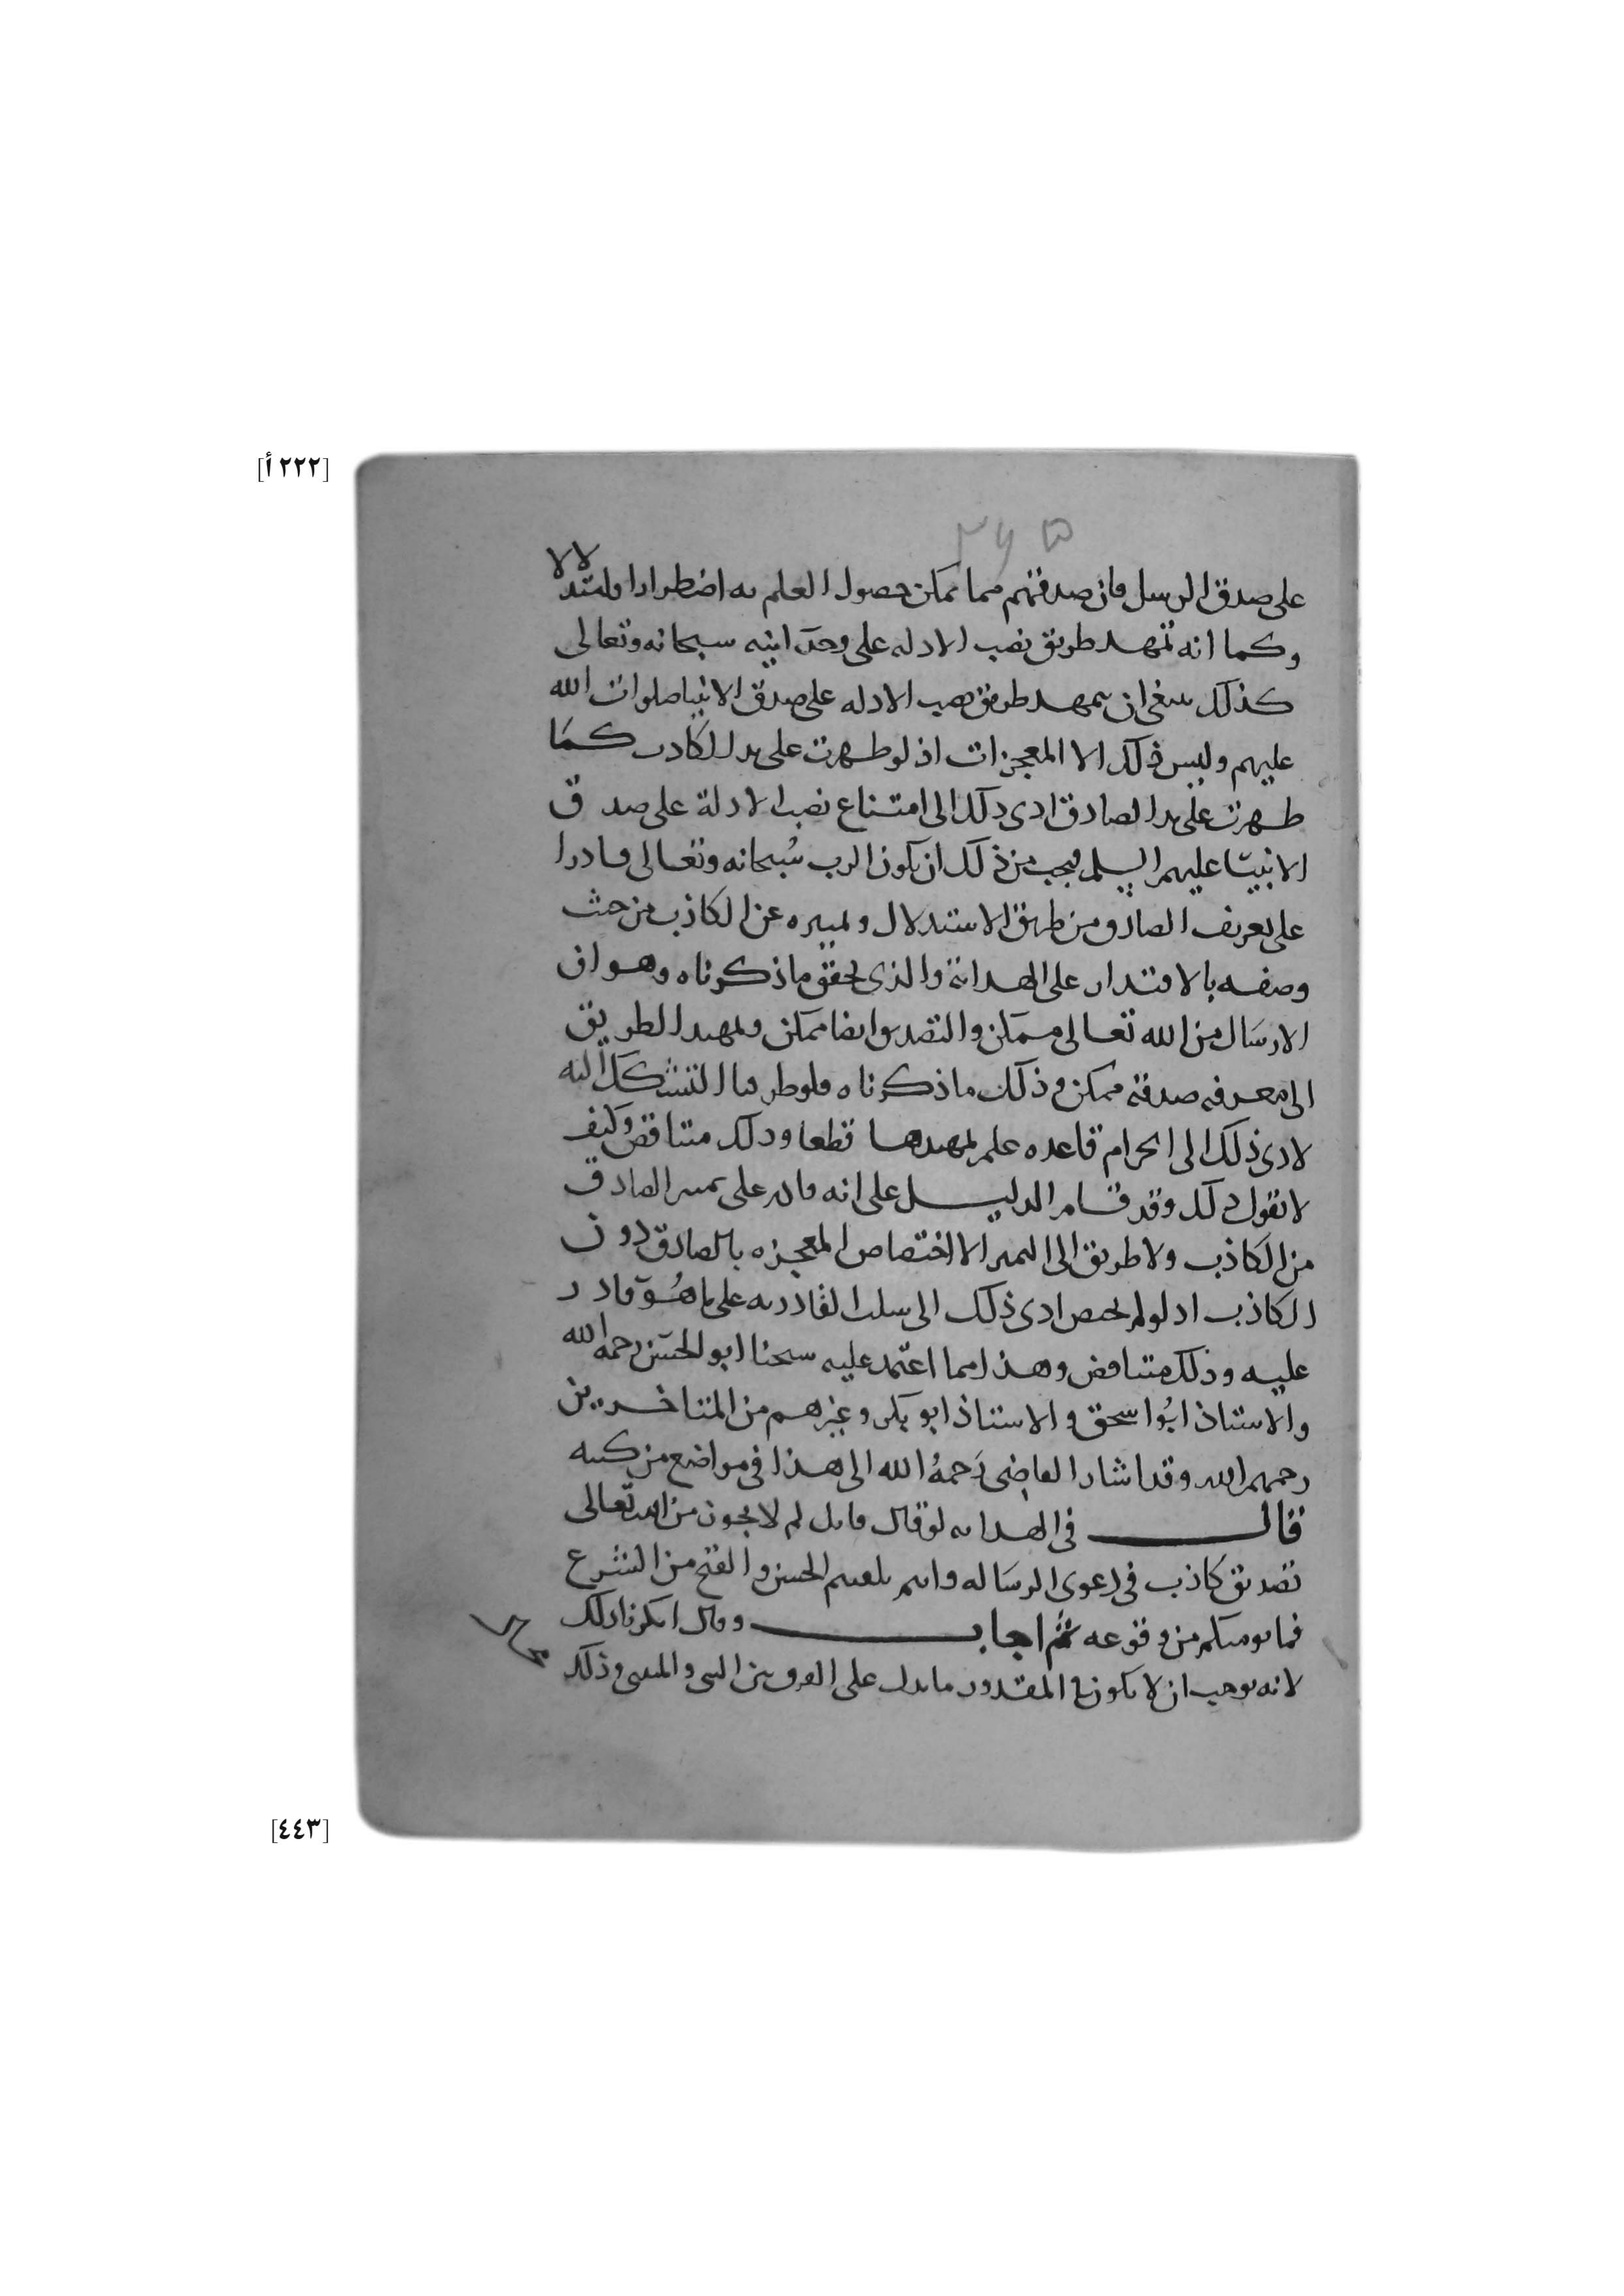 [٢٢٢ أ]
٢٦٥
على صدق الرسل فان صدقهم مما يمكن حصول العلم به اضطرارا واستدلالا
وكما انه تمهد طريق نصب الادله على وحدانيته سبحانه وتعالى
كذلك ينبغي ان يتمهد طريق نصب الادله على صدق الانبيا صلوات الله
عليهم وليس ذلك الا المعجزات اذ لو ظهرت على يد الكاذب كما
ظهرت على يد الصادق ادى ذلك الى امتناع نصب الادلة على صدق
الانبيا عليهم السلم فيجب من ذلك ان يكون الرب سبحانه وتعالى قادرا
على تعريف الصادق من طريق الاستدلال وتمييزه عن الكاذب من حيث
وصفه بالاقتدار على الهداية والذي يحقق ما ذكرناه وهو ان
الارسال من الله تعالى ممكن والتصديق ايضا ممكن وتمهيد الطريق
الى معرفة صدقه ممكن وذلك ما ذكرناه فلو طرقنا التشكك اليه
لادى ذلك الى انخرام قاعده علم تمهيدها قطعا وذلك متناقض وكيف
لا نقول ذلك وقد قام الدليل على انه قادر على تمييز الصادق
من الكاذب ولا طريق الى التمييز الا اختصاص المعجزه بالصادق دون
الكاذب اذ لو لم تختص ادى ذلك الى سلب القادريه على ما هو قادر
عليه وذلك متناقض وهذا مما اعتمد عليه شيخنا ابو الحسن رحمه الله
والاستاذ ابو اسحق والاستاذ ابو بكر وغيرهم من المتاخرين
رحمهم الله وقد اشار القاضي رحمه الله الى هذا في مواضع من كتبه
فقال في الهدايه لو قال قايل لم لا يجوز من الله تعالى
تصديق كاذب في دعوى الرساله وانتم تلقيتم الحسن والقبح من الشرع
فما يومنكم من وقوعه ثم اجاب وقال انكرنا ذلك
لانه يوجب ان لا يكون في المقدور ما يدل على الفرق بين النبي والمتنبي وذلك
محال
[٤٤٣]